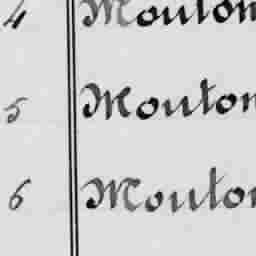 4 Mouton
5 Mouton
6 Mouton